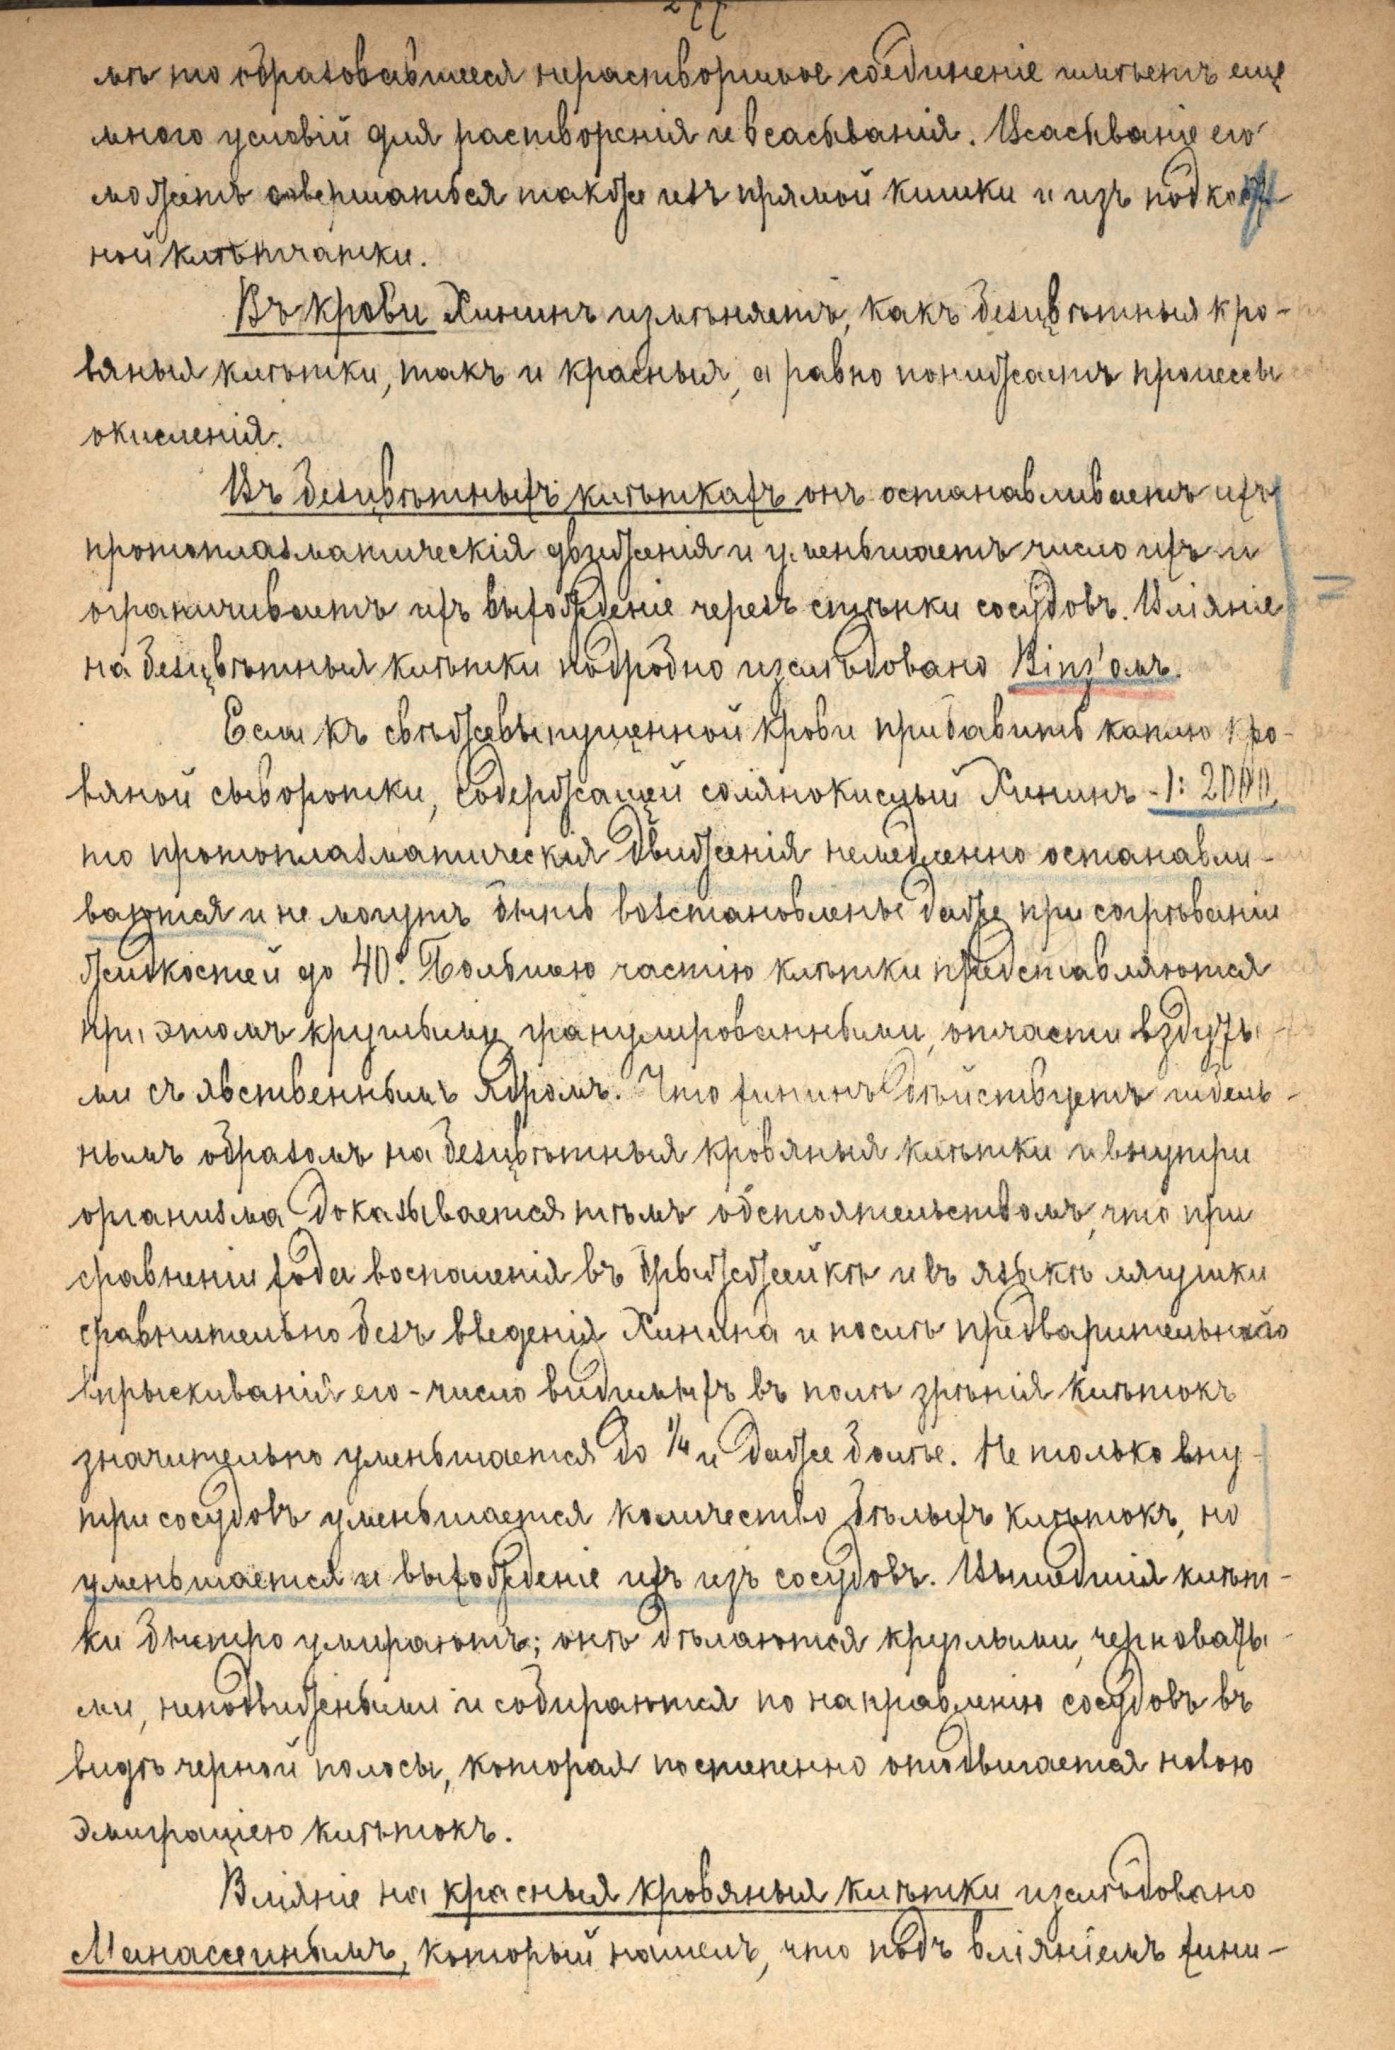 мъ то образовавшееся нерастворимое соединеніе имѣетъ еще
много условій для растворенія и всасыванія. Всасываніе его
можетъ совершаться также изъ прямой кишки и изъ подкож-
ной клѣтчатки.
Въ крови Хининъ измѣняетъ, какъ безцвѣтныя кро-
вяныя клѣтки, такъ и красныя, а равно понижаетъ процессы
окисленія.
Въ безцвѣтныхъ клѣткахъ онъ останавливаетъ ихъ
протоплазматическія движенія и уменьшаетъ число ихъ и
ограничиваетъ ихъ выхожденіе черезъ стѣнки сосудовъ. Вліяніе
на безцвѣтныя клѣтки подробно изслѣдовано Binz'омъ.
Если къ свѣжевыпущенной крови прибавить каплю кро-
вяной сыворотки, содержащей солянокислый Хининъ - 1: 2000,
то протоплазматическія движенія немедленно останавли-
ваются и не могутъ быть возстановлены даже при согрѣваніи
жидкостей до 40°. Большею частію клѣтки представляются
при этомъ круглыми, гранулированными, отчасти вздуты-
ми съ явственнымъ ядромъ. Что хининъ дѣйствуетъ подоб-
нымъ образомъ на безцвѣтныя кровяныя клѣтки и внутри
организма доказывается тѣмъ обстоятельствомъ, что при
сравненіи хода воспаленія въ брыжжейкѣ и въ языкѣ лягушки
сравнительно безъ введенія Хинина и послѣ предварительнаго
впрыскиванія его - число видимыхъ въ полѣ зрѣнія клѣтокъ
значительно уменьшается до ¼ и даже болѣе. Не только вну-
три сосудовъ уменьшается количество бѣлыхъ клѣтокъ, но
уменьшается и выхожденіе ихъ изъ сосудовъ. Вышедшія клѣт-
ки быстро умираютъ; онѣ дѣлаются круглыми, черноваты-
ми, неподвижными и собираются по направленію сосудовъ въ
видѣ черной полосы, которая постепенно отодвигается новою
эмиграціею клѣтокъ.
Вліяніе на красныя кровяныя клѣтки изслѣдовано
Манассеинымъ, который нашелъ, что подъ вліяніемъ хини-